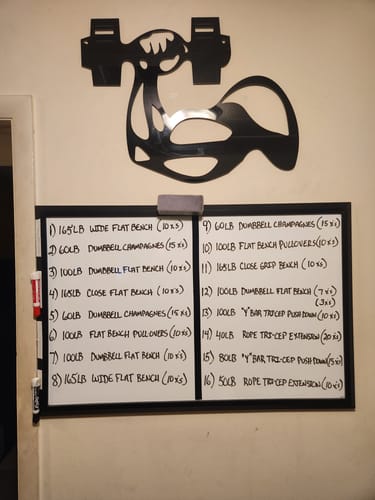 1) 165LB WIDE FLAT BENCH (10x3)
2) 60LB DUMBBELL CHAMPAGNES (15x3)
3) 100LB DUMBBELL FLAT BENCH (10x3)
4) 165LB CLOSE FLAT BENCH (10x3)
5) 60LB DUMBBELL CHAMPAGNES (15x3)
6) 100LB FLAT BENCH PULLOVERS (10x3)
7) 100LB DUMBBELL FLAT BENCH (10x3)
8) 165LB WIDE FLAT BENCH (10x3)
9) 60LB DUMBBELL CHAMPAGNES (15x3)
10) 100LB FLAT BENCH PULLOVERS (10x3)
11) 165LB CLOSE GRIP BENCH (10x3)
12) 100LB DUMBBELL FLAT BENCH (7x3)
(3x3)
13) 100LB "Y" BAR TRI-CEP PUSH DOWN (10x3)
14) 40LB ROPE TRI-CEP EXTENSION (20x3)
15) 80LB "Y" BAR TRI-CEP PUSH DOWN (15x3)
16) 50LB ROPE TRI-CEP EXTENSION (10x3)